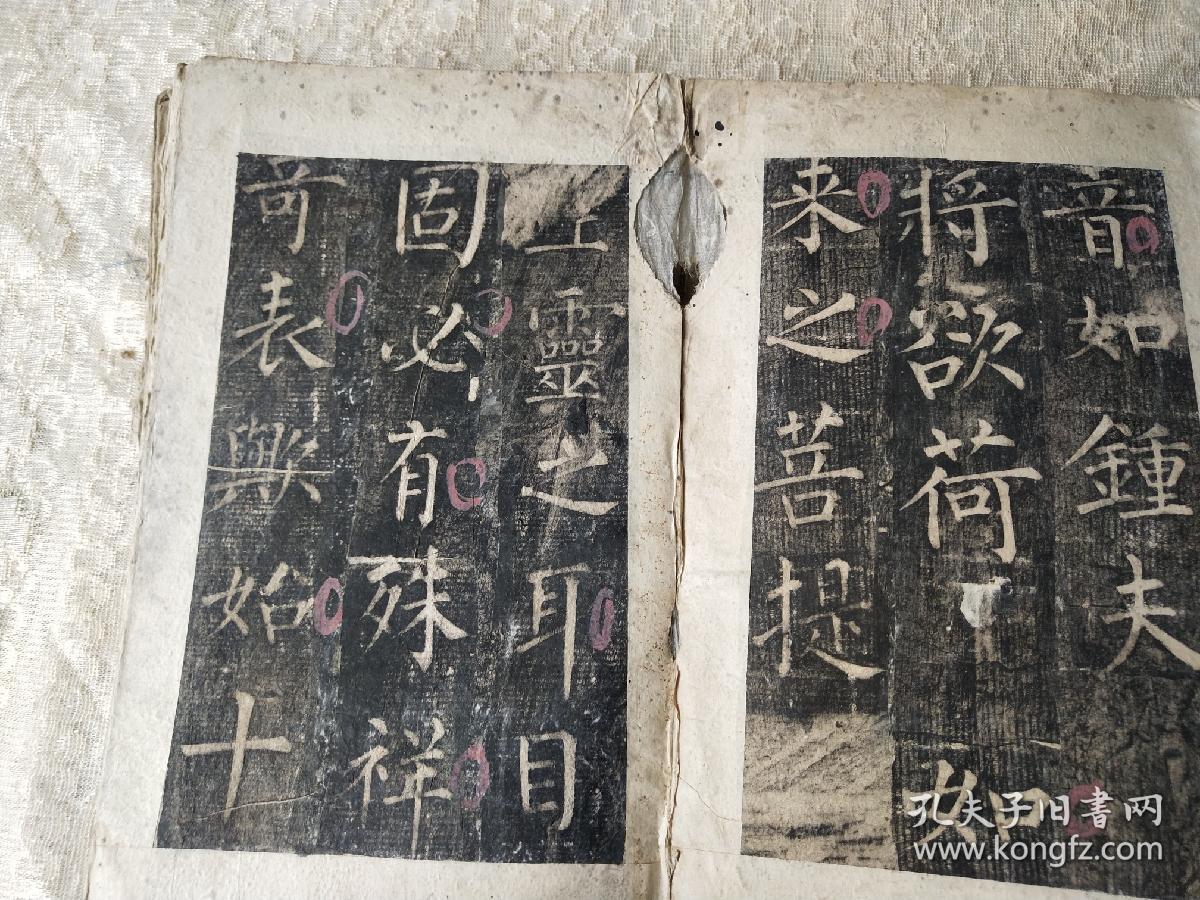 音如鍾夫
將欲荷如
来之菩提
工靈之耳目
固必有殊祥
奇表興始十
孔夫子旧書网
www.kongfz.com